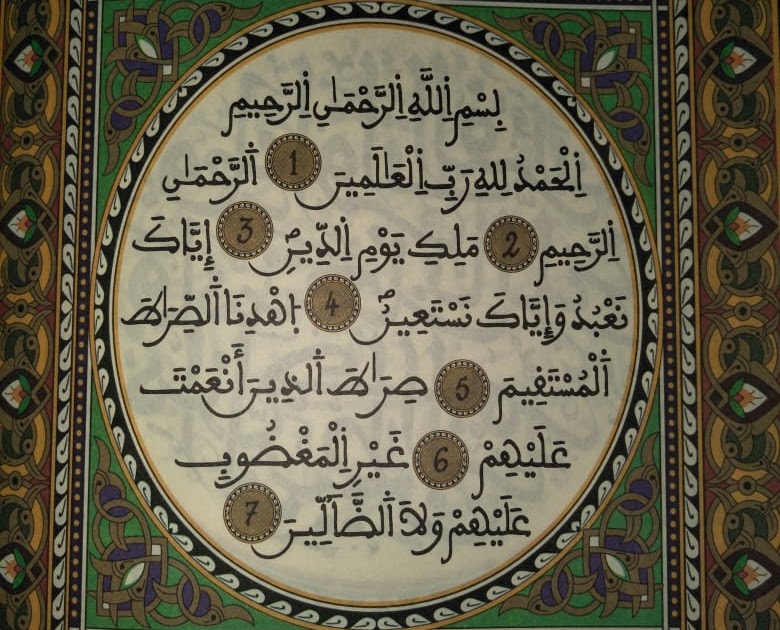 بِسْمِ اِللَّهِ اِلرَّحْمَٰنِ اِلرَّحِيمِ
اِلْحَمْدُ لِلهِ رَبِّ اِلْعَٰلَمِينَ 1 اَلرَّحْمَٰنِ
اِلرَّحِيمِ 2 مَلِكِ يَوْمِ اِلدِّينِ 3 إِيَّاكَ
نَعْبُدُ وَإِيَّاكَ نَسْتَعِينُ 4 اِهْدِنَا اَلصِّرَٰطَ
اَلْمُسْتَقِيمَ 5 صِرَٰطَ اَلذِينَ أَنْعَمْتَ
عَلَيْهِمْ 6 غَيْرِ اِلْمَغْضُوبِ
عَلَيْهِمْ وَلَا اَلضَّآلِّينَ 7